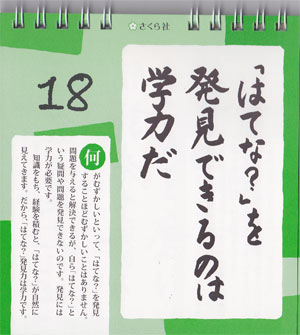 さくら社
18
「はてな?」を
発見できるのは
学力だ
何がむずかしいといって、「はてな?」を発見
することほどむずかしいことはありません。
問題を与えると解決できるが、自ら「はてな?」と
いう疑問や問題を発見できないのです。発見には
学力が必要です。
知識をもち、経験を積むと、「はてな?」が自然に
見えてきます。だから、「はてな?」発見力は学力です。